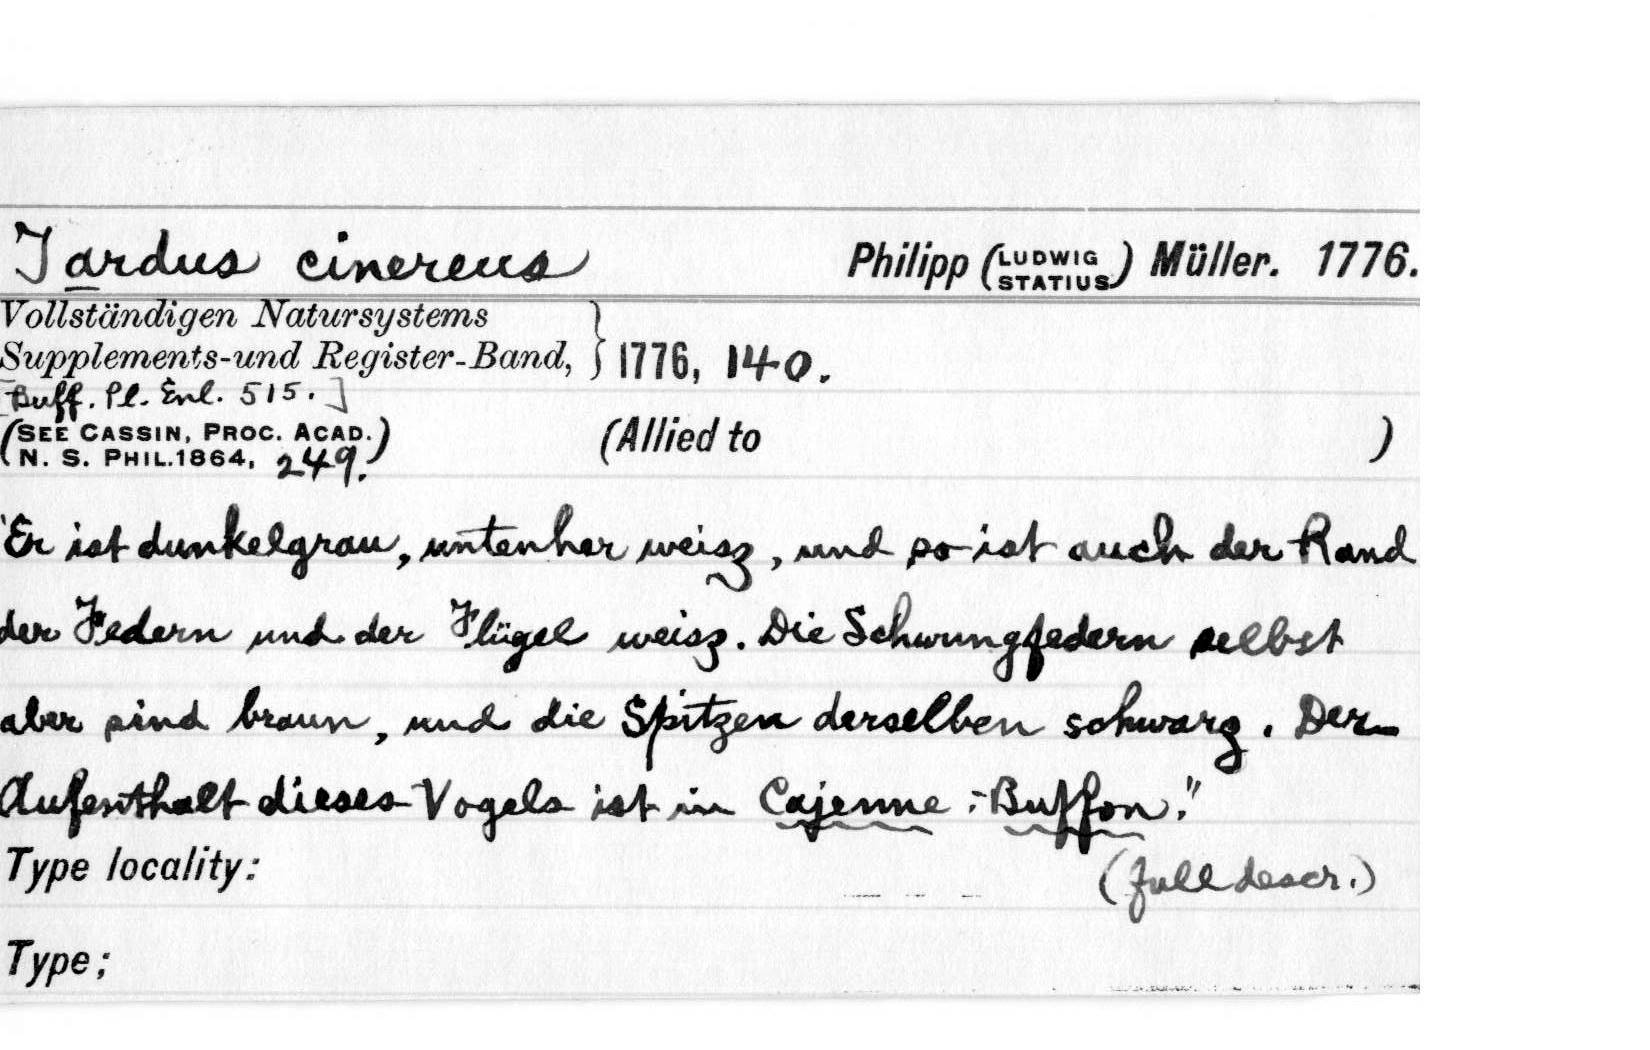 Tardus cinereus Philipp (LUDWIG STATIUS) Müller. 1776.
Vollständigen Natursystems
Supplements-und Register-Band, } 1776, 140.
[Buff. Pl. Enl. 515.]
(SEE CASSIN, PROC. ACAD. (Allied to )
N. S. PHIL. 1864, 249.)
"Er ist dunkelgrau, untenher weisz, und so ist auch der Rand
der Federn und der Flügel weisz. Die Schwungfedern selbst
aber sind braun, und die Spitzen derselben schwarz. Der
Aufenthalt dieses Vogels ist in Cajenne :- Buffon."
Type locality: (full descr.)
Type;